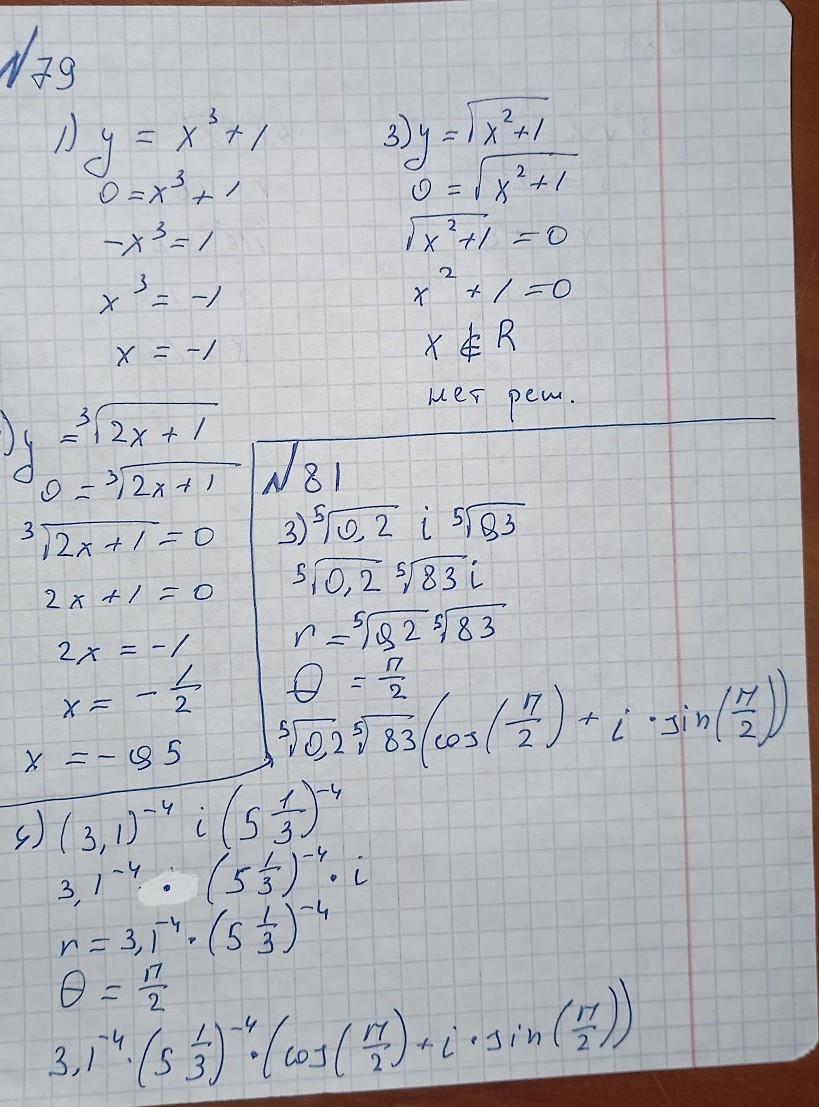 №79
1) y = x³ + 1
0 = x³ + 1
-x³ = 1
x³ = -1
x = -1
3) y = √(x² + 1)
0 = √(x² + 1)
√(x² + 1) = 0
x² + 1 = 0
x ∉ R
нет реш.
) y = ³√(2x + 1)
0 = ³√(2x + 1)
³√(2x + 1) = 0
2x + 1 = 0
2x = -1
x = - 1/2
x = - 0,5
№81
3) ⁵√0,2 i ⁵√0,3
⁵√0,2 ⁵√83 i
r = ⁵√0,2 ⁵√83
θ = π/2
⁵√0,2 ⁵√83 (cos(π/2) + i · sin(π/2))
4) (3,1)⁻⁴ i (5 1/3)⁻⁴
3,1⁻⁴ · (5 1/3)⁻⁴ · i
r = 3,1⁻⁴ · (5 1/3)⁻⁴
θ = π/2
3,1⁻⁴ · (5 1/3)⁻⁴ · (cos(π/2) + i · sin(π/2))